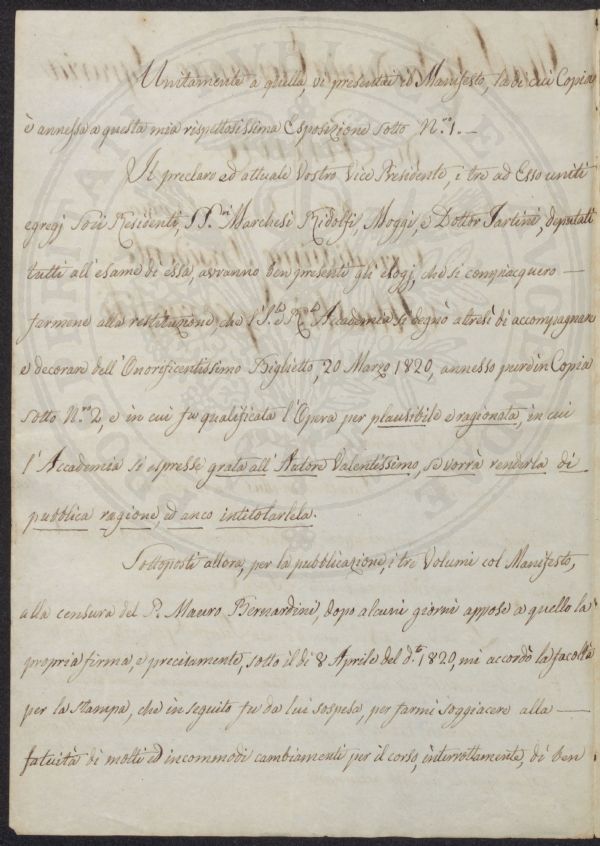 Unitamente a quella vi presentai il Manifesto, la di cui Copia
è annessa a questa mia rispettosissima Esposizione sotto N.ro 1. —
Il preclaro ed attuale Vostro Vice Presidente, i tre ad Esso uniti
egregj Socj Residenti, SS.ri Marchesi Ridolfi, Moggi, e Dottor Tartini, deputati
tutti all'esame di essa, avranno ben presenti gli elogj, che si compiacquero —
farmene alla restituzione, che l'I. e R. Accademia si degnò altresì di accompagnare
e decorare dell'Onorificentissimo Biglietto, 20 Marzo 1820, annesso pure in Copia
sotto N.ro 2, e in cui fu qualificata l'Opera per plausibile e ragionata, in cui
l'Accademia si espresse grata all'Autore Valentissimo, se vorrà renderla di
pubblica ragione, ed anco intitolarlela.
Sottoposti allora, per la pubblicazione, i tre Volumi col Manifesto,
alla censura del P. Mauro Bernardini, dopo alcuni giorni appose a quello la
propria firma, e precisamente, sotto il dì 8 Aprile del d.º 1820, mi accordò la facoltà
per la stampa, che in seguito fu da lui sospesa, per farmi soggiacere alla —
fatuità di molti ed incommodi cambiamenti per il corso, interrottamente, di ben